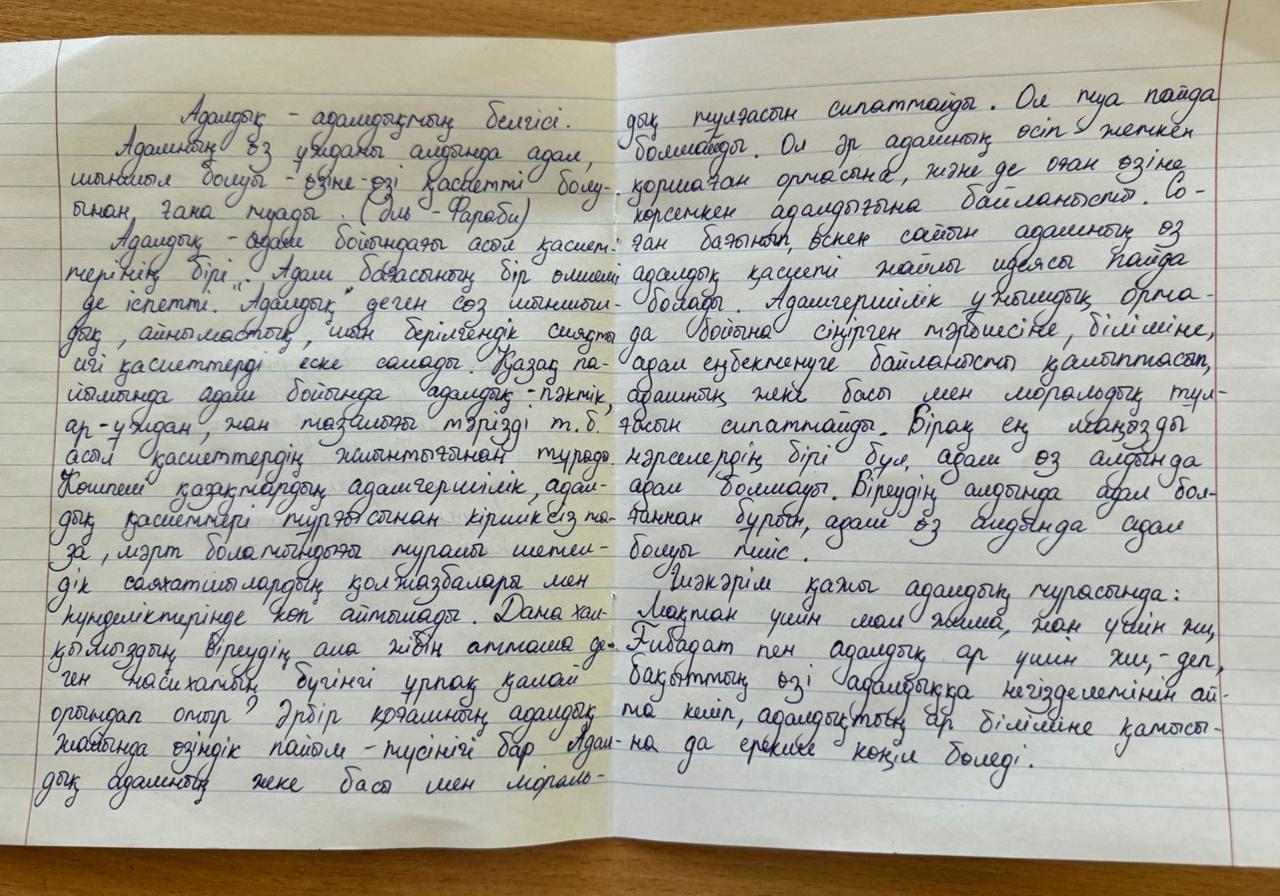 Адалдық - адамдықтың белгісі.
Адамның өз ұжданы алдында адал,
шыншыл болуы - өзіне-өзі қасиетті болу-
ынан, ғана туады. (Әль-Фараби)
Адалдық - адам бойындағы асыл қасиет-
терінің бірі. Адам бағасының бір өлшемі
де іспетті. "Адалдық" деген сөз шыншыл-
дық, айнымастық, шын берілгендік сияқты
игі қасиеттерді еске салады. Қазақ па-
йымында адам бойында адалдық - пәктік,
ар-ұждан, жан тазалығы тәрізді т.б.
асыл қасиеттердің жиынтығынан тұрады.
Көшпелі қазақтардың адамгершілік, адал-
дық қасиеттері тұрғысынан кіршіксіз та-
за, мәрт болатындығы туралы шетел-
дік саяхатшылардың қолжазбалары мен
күнделіктерінде көп айтылады. Дана хал-
қымыздың біреудің ала жібін аттама де-
ген насихатын бүгінгі ұрпақ қалай
орындап отыр? Әрбір қоғамның адалдық
жайында өзіндік пайым-түсінігі бар Адал-
дық адамның жеке басы мен мораль-
дық тұлғасын сипаттайды. Ол туа пайда
болмайды. Ол әр адамның өсіп жеткен
қоршаған ортасына, және де оған өзіне
көрсеткен адалдығына байланысты. Со-
ған бағынып, өскен сайын адамның өз
адалдық қасиеті жайлы идеясы пайда
болады. Адамгершілік ұжымдық орта-
да бойына сіңірген тәрбиесіне, біліміне,
адал еңбектенуге байланысты қалыптасып,
адамның жеке басы мен моральдық тұл-
ғасын сипаттайды. Бірақ ең маңызды
нәрселердің бірі бұл, адам өз алдында
адал болмауы. Біреудің алдында адал бол-
ғаннан бұрын, адам өз алдында адал
болуы тиіс.
Шәкәрім қажы адалдық турасында:
Мақтан үшін мал жима, жан үшін жи,
Ғибадат пен адалдық ар үшін жи,-деп,
бақыттың өзі адалдыққа негізделетінін ай-
та келіп, адалдықтың ар біліміне қатысы-
на да ерекше көңіл бөледі.